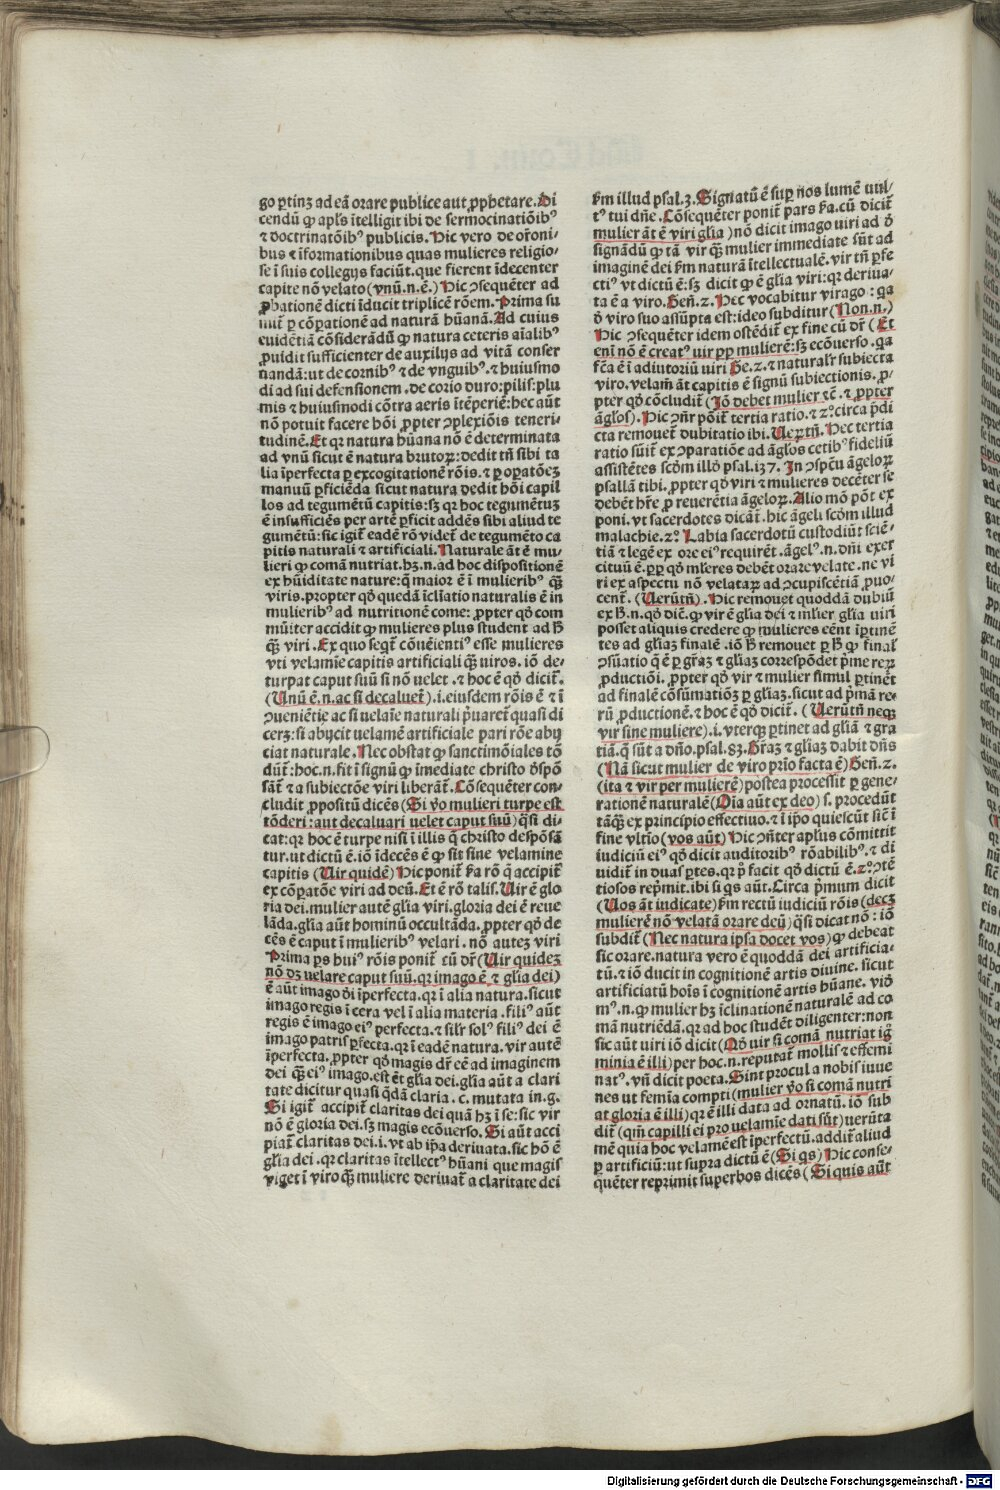 go ꝑtinꝫ ad eā orare publice aut ꝓphetare. Di
cendū ꝙ apl's ītelligit ibi de sermocinatiōibꝰ
⁊ doctrinatōibꝰ publicis. Hic vero de or̄oni-
bus ⁊ īformationibus quas mulieres religio-
se ī suis collegijs faciūt. que fierent īdecenter
capite nō velato (vnū.n.ē.) Hic ꝯsequēter ad
ꝓbationē dicti īducit triplicē rōem. Prima su
mit̄ ꝑ cōꝑationē ad naturā hūanā. Ad cuius
euidētiā cōsiderādū ꝙ natura ceteris aīalibꝰ
ꝓuidit sufficienter de auxilijs ad vitā conser
uandā: ut de cornibꝰ ⁊ de vnguibꝰ. ⁊ huiusmo
di ad sui defensionem. de corio duro: pilis: plu
mis ⁊ huiusmodi cōtra aeris ītēperiē: hec aūt
nō potuit facere hōi ꝓpter ꝯplexiōis teneri-
tudinē. Et qꝛ natura hūana nō ē determinata
ad vnū sicut ē natura brutoꝝ: dedit tn̄ sibi ta
lia īperfecta ꝑ excogitationē rōis. ⁊ ꝑ oꝑatōeꝫ
manuū ꝑficiēda sicut natura dedit hōi capil
los ad tegumētū capitis: sꝫ qꝛ hoc tegumētuꝫ
ē insufficiēs per artē ꝑficit addēs sibi aliud te
gumētū: sic igit̄ eadē rō videt̄ de tegumēto ca
pitis naturali ⁊ artificiali. Naturale āt ē mu-
lieri ꝙ comā nutriat. hꝫ.n. ad hoc dispositionē
ex hūiditate nature: q̄ maior ē ī mulieribꝰ q̄ꝫ
viris. propter qd̄ quedā īcl'iatio naturalis ē in
mulieribꝰ ad nutritionē come: ꝓpter qd̄ com
mūiter accidit ꝙ mulieres plus student ad ħ
q̄ꝫ viri. Ex quo seqt̄ cōuēienti' esse mulieres
vti velamīe capitis artificiali q̄ꝫ uiros. iō de-
turpat caput suū si nō velet. ⁊ hoc ē qd̄ dicit̄.
(Unū ē.n. ac si decaluet̄).i. eiusdem rōis ē ⁊ ī
ꝯueniētie ac si uelaīe naturali pͥuaret̄ quasi di
cerꝫ: si abijcit uelamē artificiale pari rōe abij
ciat naturale. Nec obstat ꝙ sanctimōiales tō
dūt̄: hoc.n. fit ī signū ꝙ īmediate christo d'spō
sāt̄ ⁊ a subiectōe viri liberāt̄. Cōsequēter con-
cludit ꝓpositū dicēs (Si vo mulieri turpe est
tōderi: aut decaluari uelet caput suū) q̄si di-
cat: qꝛ hoc ē turpe nisi ī illis q̄ christo despōsā
tur. ut dictū ē. iō īdecēs ē ꝙ sit sine velamine
capitis (Uir quidē) Hic ponit̄ ẜa rō q̄ accipit̄
ex cōpatōe viri ad deū. Et ē rō talis. Uir ē glo
ria dei. mulier autē gl'ia viri. gloria dei ē reue
lāda. gl'ia aūt hominū occultāda. ꝓpter qd̄ de-
cēs ē caput ī mulieribꝰ velari. nō auteꝫ viri
Prima ꝑs huiꝰ rōis ponit̄ cū dr̄ (Uir quideꝫ
nō dꝫ uelare caput suū. qꝛ imago ē ⁊ gl'ia dei)
ē aūt imago d'i īperfecta. qꝛ ī alia natura. sicut
imago regis ī cera vel ī alia materia. filiꝰ aūt
regis ē imago eiꝰ perfecta. ⁊ sil'r solꝰ filiꝰ dei ē
imago patris ꝑfecta. qꝛ ī eadē natura. vir autē
īperfecta. ꝓpter qd̄ magis dr̄ eē ad imaginem
dei q̄ꝫ eiꝰ imago. est ēt gl'ia dei. gl'ia aūt a clari
tate dicitur quasi q̄dā claria. c. mutata in.g.
Si igit̄ accipit̄ claritas dei quā hꝫ ī se: sic vir
nō ē gloria dei. sꝫ magis ecōuerso. Si aūt acci
piat̄ claritas dei.i. vt ab ip̄a deriuata. sic hō ē
gl'ia dei. qꝛ claritas ītellectꝰ hūani que magis
viget ī viro q̄ꝫ muliere deriuat̄ a claritate dei
ẜm illud psal.3. Signatū ē suꝑ nos lumē uul-
tꝰ tui dn̄e. Cōsequēter ponit̄ pars ẜa. cū dicit̄
mulier āt ē viri gl'ia) nō dicit imago uiri ad d'
signādū ꝙ tā vir q̄ꝫ mulier immediate sūt ad
imaginē dei ẜm naturā ītellectualē. vir tn̄ ꝑfe
ctiꝰ vt dictū ē: sꝫ dicit ꝙ ē gl'ia viri: qꝛ deriua-
ta ē a viro. Gen̄.2. Hec vocabitur virago: qa
d' viro suo assūpta est: ideo subditur (Non.n.)
Hic ꝯsequēter idem ostēdit̄ ex fine cū dr̄ (Et
enī nō ē creatꝰ uir ꝓp mulierē: sꝫ ecōuerso. qa
fc̄a ē ī adiutoriū uiri Ge.2. ⁊ naturalr̄ subiecta
viro. velam̄ āt capitis ē signū subiectionis. ꝓ-
pter qd̄ cōcludit (Iō debet mulier ⁊c̄. ⁊ ꝓpter
āglos). Hic ꝯn̄r pōit̄ tertia ratio. ⁊ 2o circa p̄di
cta remouet̄ dubitatio ibi. Ueꝝtn̄. Hec tertia
ratio sūit̄ ex ꝯparatiōe ad āglos cetibꝰ fideliū
assistētes scd̄m illd' psal.137. In ꝯspc̄tu āgeloꝝ
psallā tibi. ꝓpter qd̄ viri ⁊ mulieres decēter se
debēt hr̄e ꝓ reuerētia āgeloꝝ. Alio mō pōt ex
poni. vt sacerdotes dicāt̄. hic āgeli scd̄m illud
malachie.2o Labia sacerdotū custodiūt sciē-
tiā ⁊ legē ex ore eiꝰ requirēt. āgelꝰ.n. dn̄i exer
cituū ē. ꝓp qd̄ ml'eres debēt orare velate. ne vi
ri ex aspectu nō velataꝝ ad ꝯcupiscētiā ꝓuo-
cent̄. (Uerūtn̄). Hic remouet quoddā dubiū
ex ħ.n. qd̄ dic̄. ꝙ vir ē gl'ia dei ⁊ ml'ier gl'ia uiri
posset aliquis credere ꝙ mulieres eēnt īptinē
tes ad gl'iaꝫ finalē. iō ħ remouet ꝑ ħ ꝙ final'
ꝯsūatio q̄ ē ꝑ gr̄aꝫ ⁊ gl'iaꝫ correspōdet pͥme reꝝ
ꝓductiōi. ꝓpter qd̄ vir ⁊ mulier simul ꝑtinēt
ad finalē cōsūmatiōꝫ ꝑ gl'iaꝫ. sicut ad pͥmā re-
rū ꝓductionē. ⁊ hoc ē qd̄ dicit̄. (Uerūtn̄ neqꝫ
vir sine muliere).i. vterqꝫ ꝑtinet ad gl'iā ⁊ gra
tiā. q̄ sūt a dn̄o. psal.83. Gr̄aꝫ ⁊ gl'iaꝫ dabit dn̄s
(Nā sicut mulier de viro prīo facta ē) Gen̄.2.
(ita ⁊ vir per mulierē) postea processit ꝑ gene-
rationē naturalē (Oīa aūt ex deo) s. procedūt
tāq̄ꝫ ex principio effectiuo. ⁊ ī ip̄o quiescūt sic̄ ī
fine vltīo (vos aūt) Hic ꝯn̄ter apl'us cōmittit
iudiciū eiꝰ qd̄ dicit auditoribꝰ rōabilibꝰ. ⁊ di
uidit̄ in duas ꝑtes. qꝛ p̄ facit qd̄ dictū ē. 2o ꝯtē
tiosos rep̄mit. ibi si qͥs aūt. Circa pͥmum dicit
(Uos āt iudicate) ẜm rectū iudiciū rōis (deceꝫ
mulierē nō velatā orare deū) q̄si dicat nō: iō
subdit̄ (Nec natura ipsa docet vos) ꝙ debeat
sic orare. natura vero ē quoddā dei artificia-
tū. ⁊ iō ducit in cognitionē artis diuine. sicut
artificiatū hoīs ī cognitionē artis hūane. vid'
mꝰ.n. ꝙ mulier hꝫ īclinationē naturalē ad co
mā nutriēdā. qꝛ ad hoc studēt diligenter: non
sic aūt uiri iō dicit (Qd̄ uir si comā nutriat ig
minia ē illi) per hoc.n. reputat̄ mollis ⁊ effemi
natꝰ. vn̄ dicit poeta. Sint procul a nobis iuue
nes ut femīa compti (mulier vo si comā nutri
at gloria ē illi) qꝛ ē illi data ad ornatū. iō sub
dit̄ (qm̄ capilli ei pro uelamīe dati sūt) uerūta
mē quia hoc velamē est īperfectū. addit̄ aliud
ꝑ artificiū: ut supra dictū ē (Si qs) Hic conse-
quēter reprimit superbos dicēs (Si quis aūt
Digitalisierung gefördert durch die Deutsche Forschungsgemeinschaft - DFG